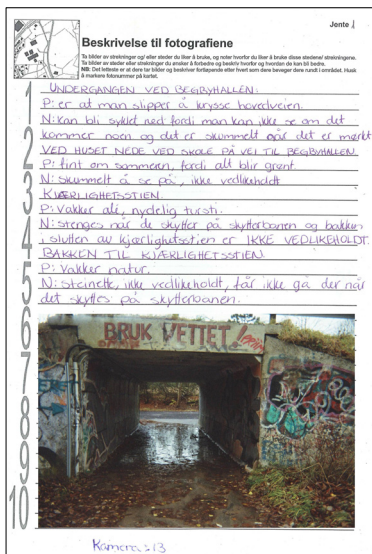 Jente 1
Beskrivelse til fotografiene
Ta bilder av strekninger og/ eller steder du liker å bruke, og noter hvorfor du liker å bruke disse stedene/ strekningene.
Ta bilder av steder eller strekninger du ønsker å forbedre og beskriv hvorfor og hvordan de kan bli bedre.
NB: Det letteste er at dere tar bilder og beskriver fortløpende etter hvert som dere beveger dere rundt i området. Husk
å markere fotonummer på kartet.
1 UNDERGANGEN VED BEGBYHALLEN:
P: er at man slipper å krysse hovedveien.
N: kan bli syklet ned fordi man kan ikke se om det
2 kommer noen og det er skummelt når det er mørkt
VED HUSET NEDE VED SKOLE PÅ VEI TIL BEGBYHALLEN.
P: fint om sommeren, fordi alt blir grønt.
3 N: Skummelt å se på, ikke vedlikeholdt
KJÆRLIGHETSSTIEN.
P: Vakker ale, nydelig tursti.
4 N: stenges når de skyter på skytterbanen og bakken
i slutten av kjærlighetsstien er IKKE VEDLIKEHOLDT.
BAKKEN TIL KJÆRLIGHETSSTIEN.
5 P: Vakker natur.
N: steinette, ikke vedlikeholdt, får ikke gå der når
det skytes på skytterbanen.
6
7
8
9
10
BRUK VETTET!
Kamera: 13